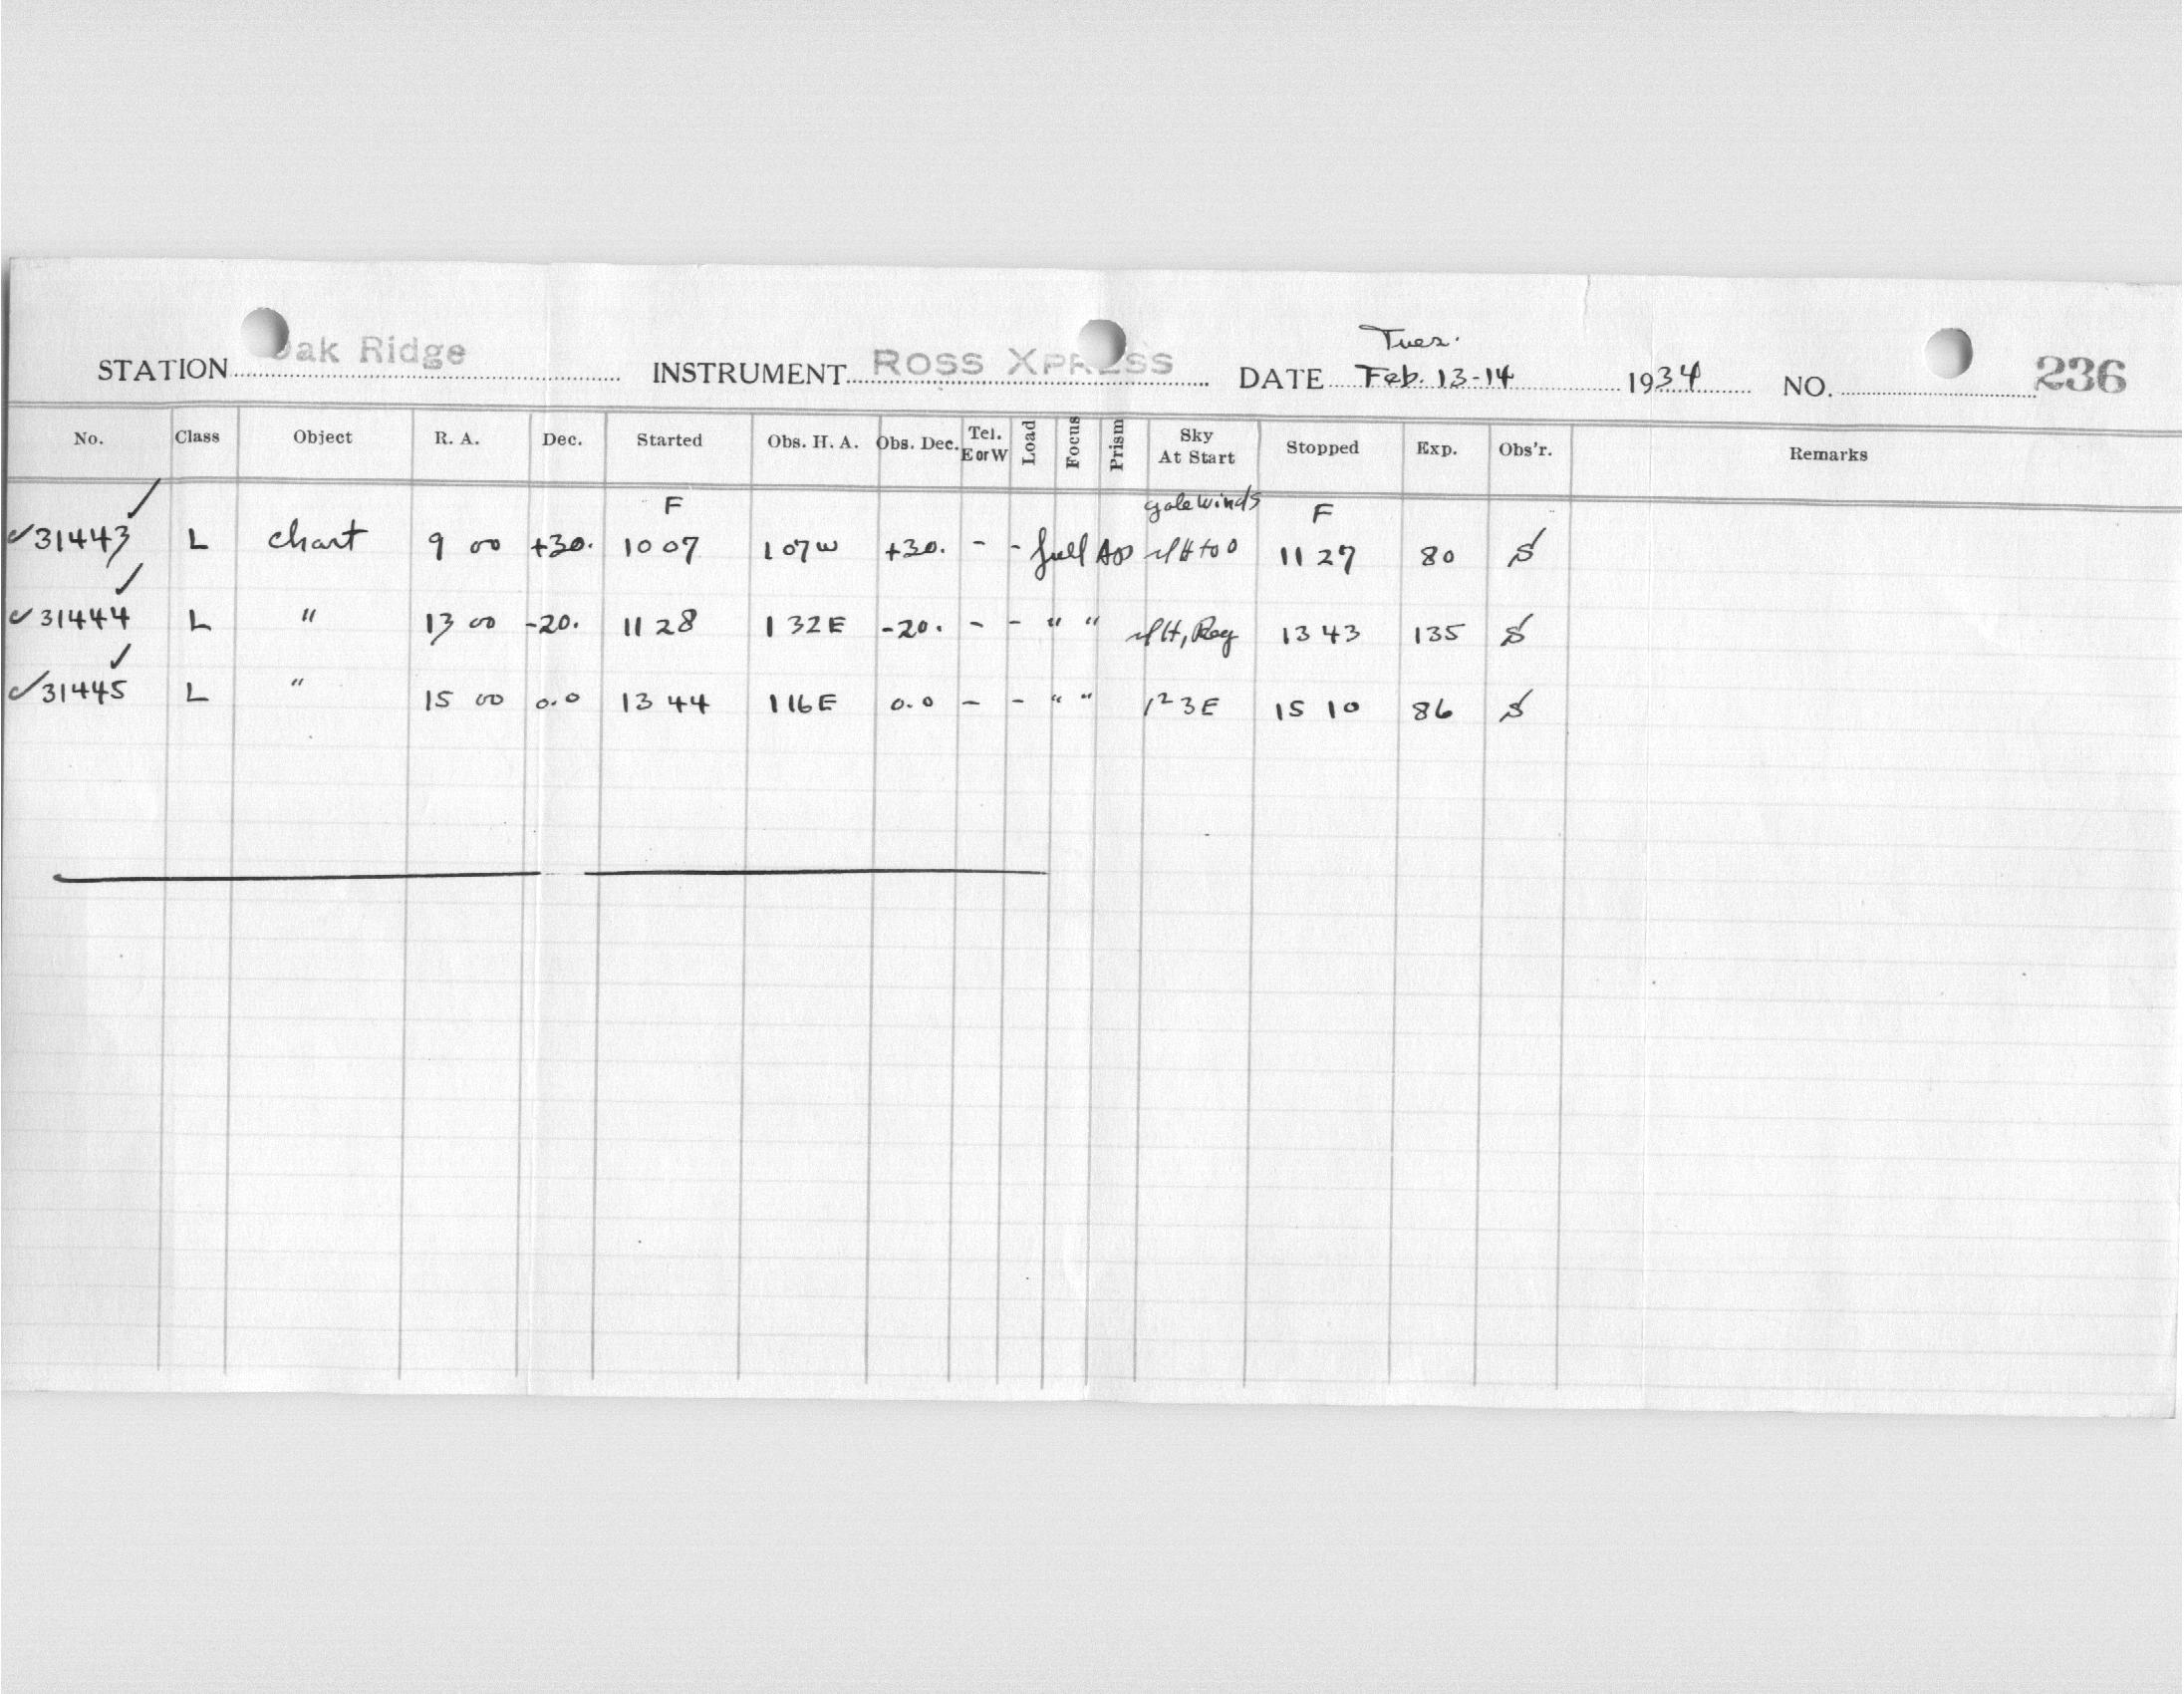 Tues.
STATION Oak Ridge INSTRUMENT ROSS XPRESS DATE Feb. 13-14 1934 NO. 236
No. Class Object R. A. Dec. Started Obs. H. A. Obs. Dec. Tel. E or W Load Focus Prism Sky At Start Stopped Exp. Obs'r. Remarks
F gale winds F
✓31443 ✓ L chart 9 00 +30. 10 07 1 07 W +30. - - full Ap 11 27 80 S
✓31444 ✓ L " 13 00 -20. 11 28 1 32 E -20. - - " " 13 43 135 S
✓31445 ✓ L " 15 00 0.0 13 44 1 16 E 0.0 - - " " 1² 3E 15 10 86 S